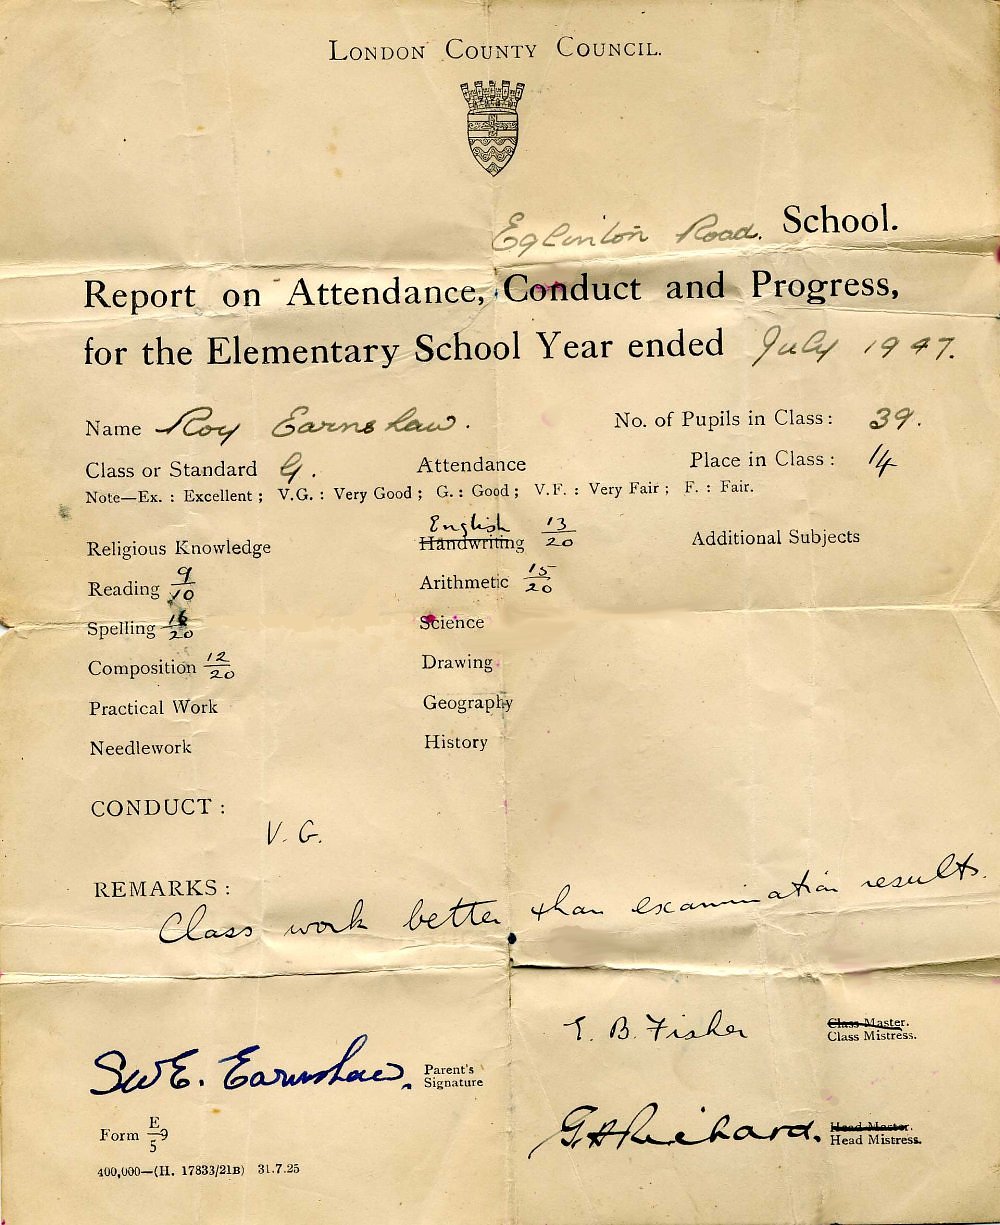 LONDON COUNTY COUNCIL.
Eglinton Road. School.
Report on Attendance, Conduct and Progress,
for the Elementary School Year ended July 1947.
Name Roy Earnshaw. No. of Pupils in Class: 39.
Class or Standard 9. Attendance Place in Class: 14
Note—Ex. : Excellent ; V.G. : Very Good ; G. : Good ; V.F. : Very Fair ; F. : Fair.
English
Religious Knowledge Handwriting 13/20 Additional Subjects
Reading 9/10 Arithmetic 15/20
Spelling 16/20 Science
Composition 12/20 Drawing
Practical Work Geography
Needlework History
CONDUCT :
V. G.
REMARKS :
Class work better than examination results.
E. B. Fisher Class Master.
Class Mistress.
SWE. Earnshaw. Parent's
Signature
Form E/5 9
G H Richard. Head Master.
Head Mistress.
400,000—(H. 17833/21B) 31.7.25